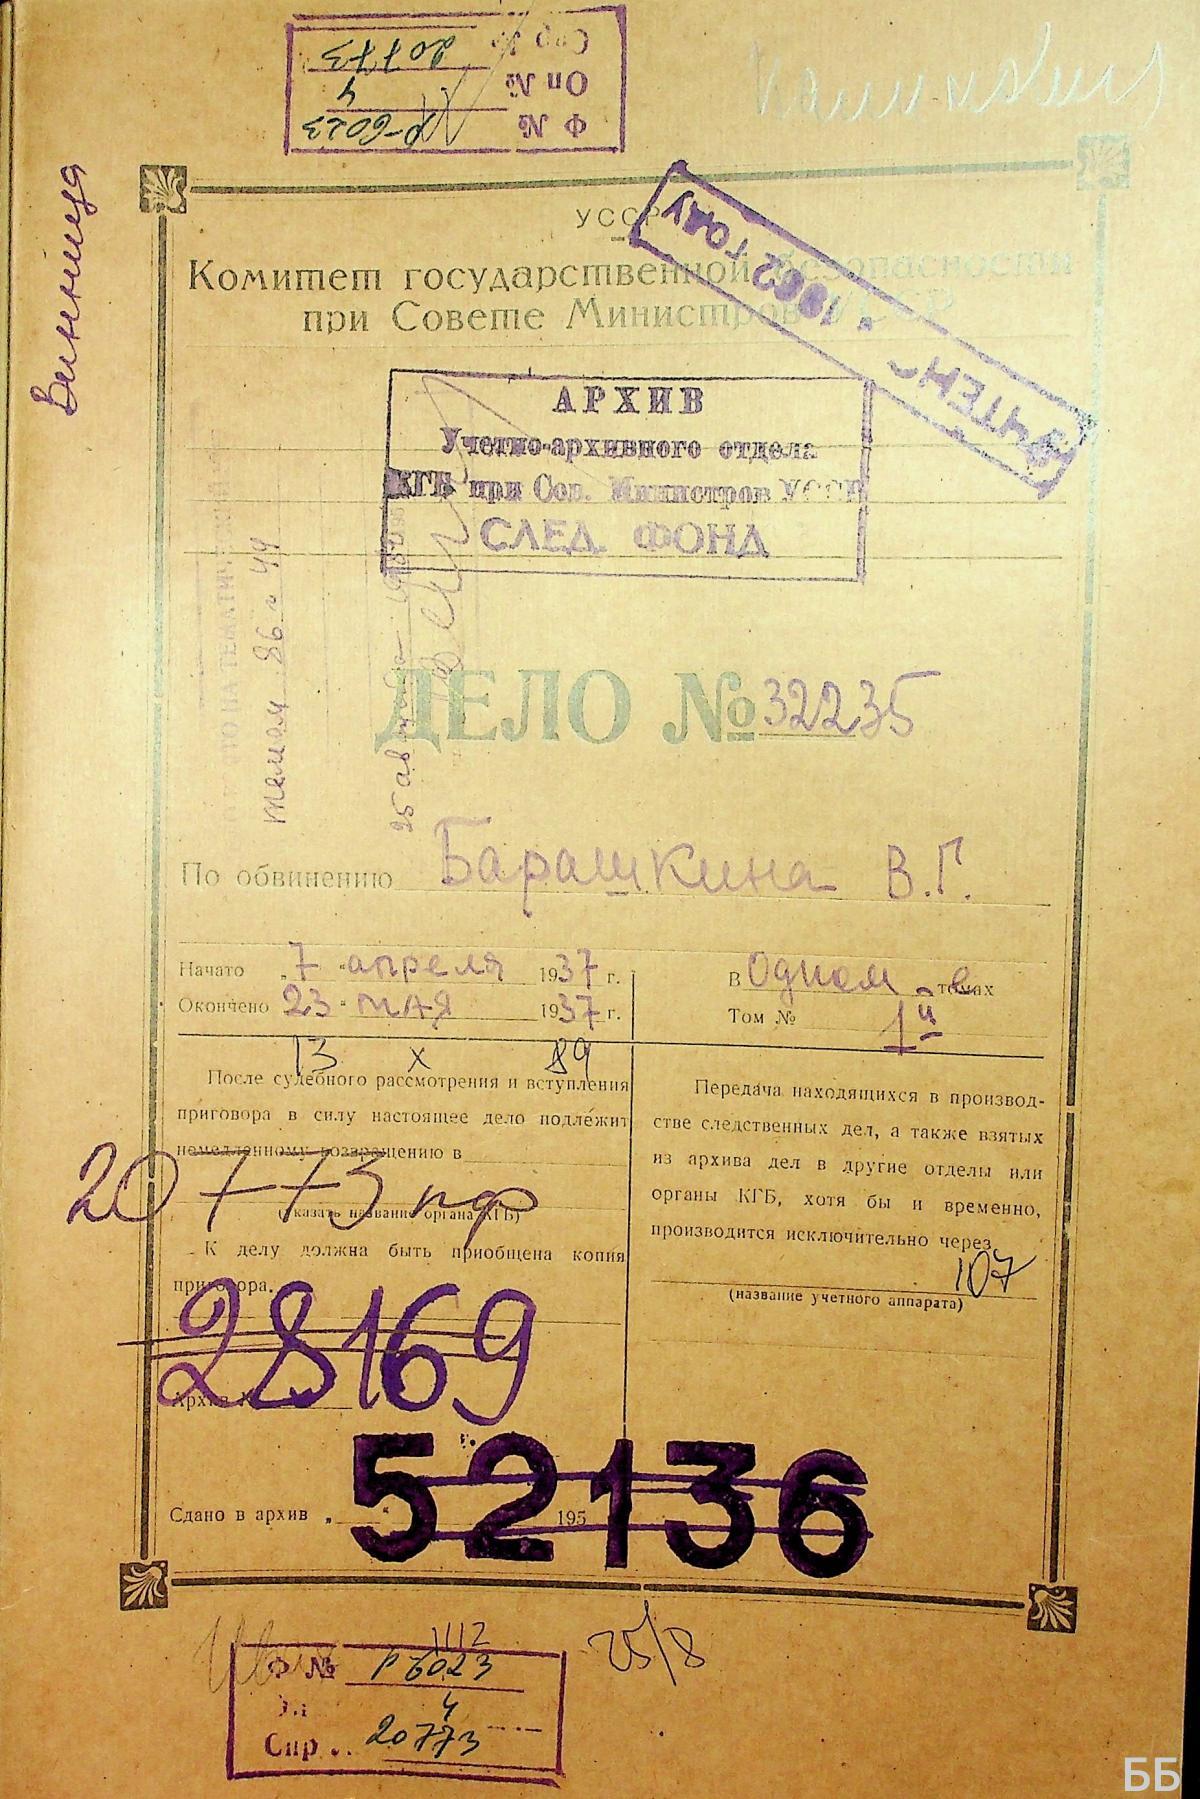 Ф № Р-6023
Оп № 4
Спр № 20773
Винница
УССР
Комитет государственной безопасности
при Совете Министров УССР
УЧТЕНО
в 1962 ГОДУ
АРХИВ
Учетно-архивного отдела
КГБ при Сов. Министров УССР
СЛЕД. ФОНД
ДЕЛО № 32235
По обвинению Барашкина В.Г.
Начато „7“ апреля 1937 г.
Окончено 23 “ мая 1937 г.
В Одном томах
Том № 1й
13 X 89
После судебного рассмотрения и вступления
приговора в силу настоящее дело подлежит
немедленному возвращению в
20773 пф
(указать название органа КГБ)
К делу должна быть приобщена копия
приговора.
28169
Архив №
Передача находящихся в производ-
стве следственных дел, а также взятых
из архива дел в другие отделы или
органы КГБ, хотя бы и временно,
производится исключительно через
107
(название учетного аппарата)
52136
Сдано в архив „ “ 195
1112
25/8
Ф № Р 6023
4
Спр 20773
ББ